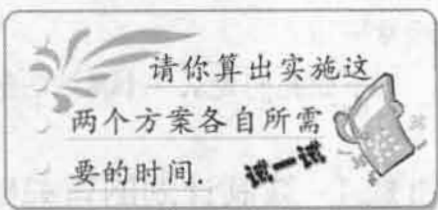 请你算出实施这
两个方案各自所需
要的时间.
试一试